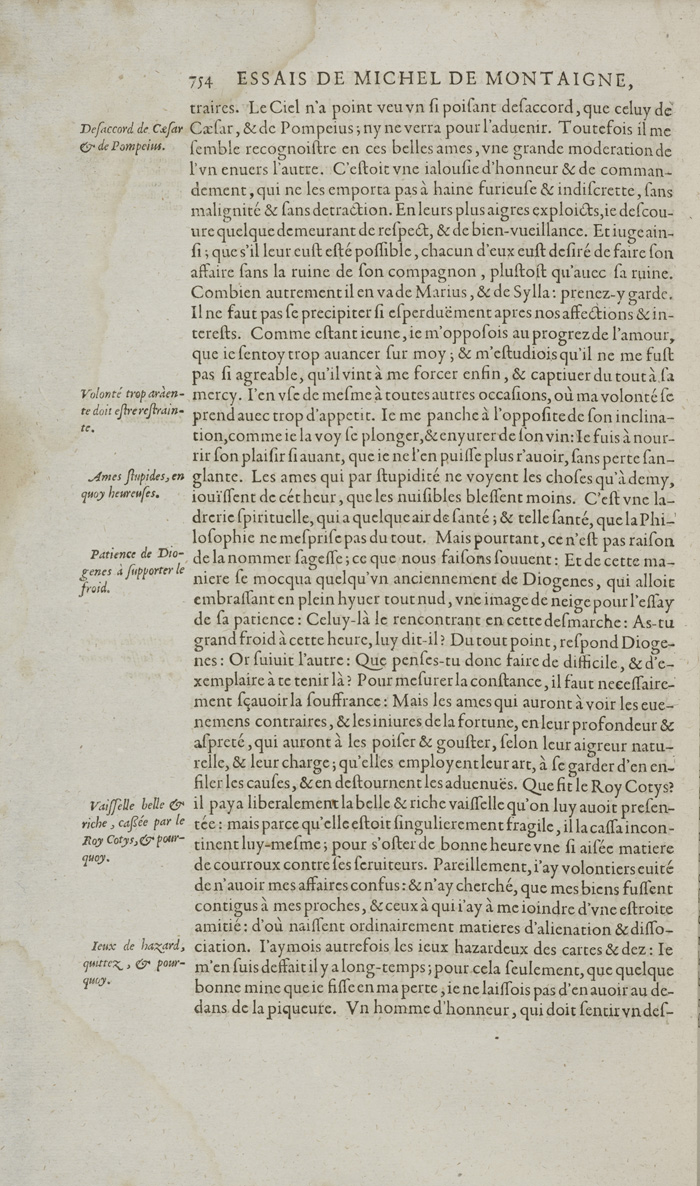 754 ESSAIS DE MICHEL DE MONTAIGNE,
traires. Le Ciel n'a point veu vn ſi poiſant deſaccord, que celuy de
Deſaccord de Cæſar
& de Pompeius.
Cæſar, & de Pompeius; ny ne verra pour l'aduenir. Toutefois il me
ſemble recognoiſtre en ces belles ames, vne grande moderation de
l'vn enuers l'autre. C'eſtoit vne ialouſie d'honneur & de comman-
dement, qui ne les emporta pas à haine furieuſe & indiſcrette, ſans
malignité & ſans detraction. En leurs plus aigres exploicts, ie deſcou-
ure quelque demeurant de reſpect, & de bien-vueillance. Et iuge ain-
ſi; que s'il leur euſt eſté poſſible, chacun d'eux euſt deſiré de faire ſon
affaire ſans la ruine de ſon compagnon, pluſtoſt qu'auec ſa ruine.
Combien autrement il en va de Marius, & de Sylla: prenez-y garde.
Il ne faut pas ſe precipiter ſi eſperduëment apres nos affections & in-
tereſts. Comme eſtant ieune, ie m'oppoſois au progrez de l'amour,
que ie ſentoy trop auancer ſur moy; & m'eſtudiois qu'il ne me fuſt
pas ſi agreable, qu'il vint à me forcer enfin, & captiuer du tout à ſa
Volonté trop arden-
te doit eſtre reſtrain-
te.
mercy. I'en vſe de meſme à toutes autres occaſions, où ma volonté ſe
prend auec trop d'appetit. Ie me panche à l'oppoſite de ſon inclina-
tion, comme ie la voy ſe plonger, & enyurer de ſon vin: Ie fuis à nour-
rir ſon plaiſir ſi auant, que ie ne l'en puiſſe plus r'auoir, ſans perte ſan-
Ames ſtupides, en
quoy heureuſes.
glante. Les ames qui par ſtupidité ne voyent les choſes qu'à demy,
iouïſſent de cét heur, que les nuiſibles bleſſent moins. C'eſt vne la-
drerie ſpirituelle, qui a quelque air de ſanté; & telle ſanté, que la Phi-
loſophie ne meſpriſe pas du tout. Mais pourtant, ce n'eſt pas raiſon
Patience de Dio-
genes à ſupporter le
froid.
de la nommer ſageſſe; ce que nous faiſons ſouuent: Et de cette ma-
niere ſe mocqua quelqu'vn anciennement de Diogenes, qui alloit
embraſſant en plein hyuer tout nud, vne image de neige pour l'eſſay
de ſa patience: Celuy-là le rencontrant en cette deſmarche: As-tu
grand froid à cette heure, luy dit-il? Du tout point, reſpond Dioge-
nes: Or ſuiuit l'autre: Que penſes-tu donc faire de difficile, & d'e-
xemplaire à te tenir là? Pour meſurer la conſtance, il faut neceſſaire-
ment ſçauoir la ſouffrance: Mais les ames qui auront à voir les eue-
nemens contraires, & les iniures de la fortune, en leur profondeur &
aſpreté, qui auront à les poiſer & gouſter, ſelon leur aigreur natu-
relle, & leur charge; qu'elles employent leur art, à ſe garder d'en en-
filer les cauſes, & en deſtournent les aduenuës. Que fit le Roy Cotys?
Vaiſſelle belle &
riche, caßée par le
Roy Cotys, & pour-
quoy.
il paya liberalement la belle & riche vaiſſelle qu'on luy auoit preſen-
tée: mais parce qu'elle eſtoit ſingulierement fragile, il la caſſa incon-
tinent luy-meſme; pour s'oſter de bonne heure vne ſi aiſée matiere
de courroux contre ſes ſeruiteurs. Pareillement, i'ay volontiers euité
de n'auoir mes affaires confus: & n'ay cherché, que mes biens fuſſent
contigus à mes proches, & ceux à qui i'ay à me ioindre d'vne eſtroite
amitié: d'où naiſſent ordinairement matieres d'alienation & diſſo-
Ieux de hazard,
quittez, & pour-
quoy.
ciation. I'aymois autrefois les ieux hazardeux des cartes & dez: Ie
m'en ſuis deffait il y a long-temps; pour cela ſeulement, que quelque
bonne mine que ie fiſſe en ma perte, ie ne laiſſois pas d'en auoir au de-
dans de la piqueure. Vn homme d'honneur, qui doit ſentir vn deſ-